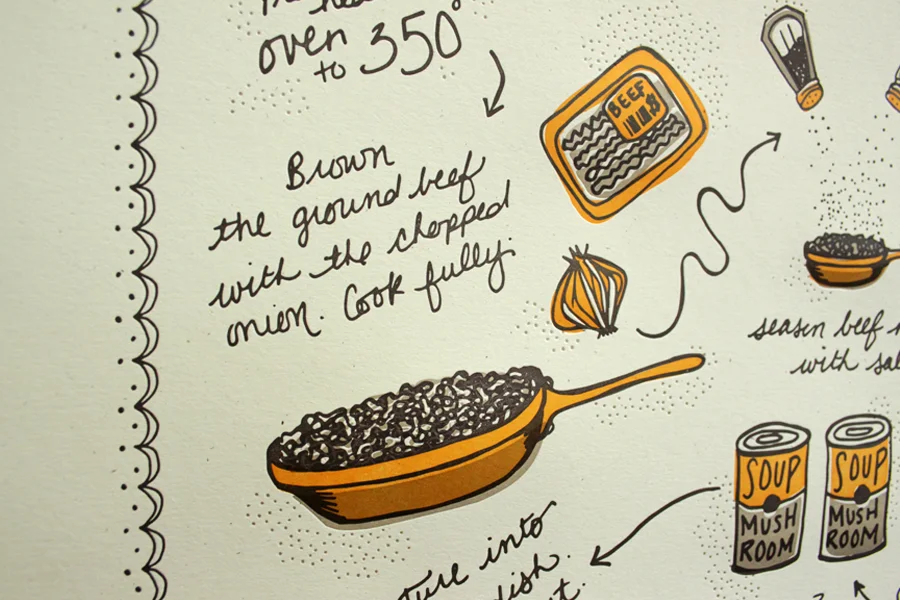 oven
to 350
Brown
the ground beef
with the chopped
onion. Cook fully.
BEEF
season beef
with
SOUP
MUSH
ROOM
SOUP
MUSH
ROOM
into